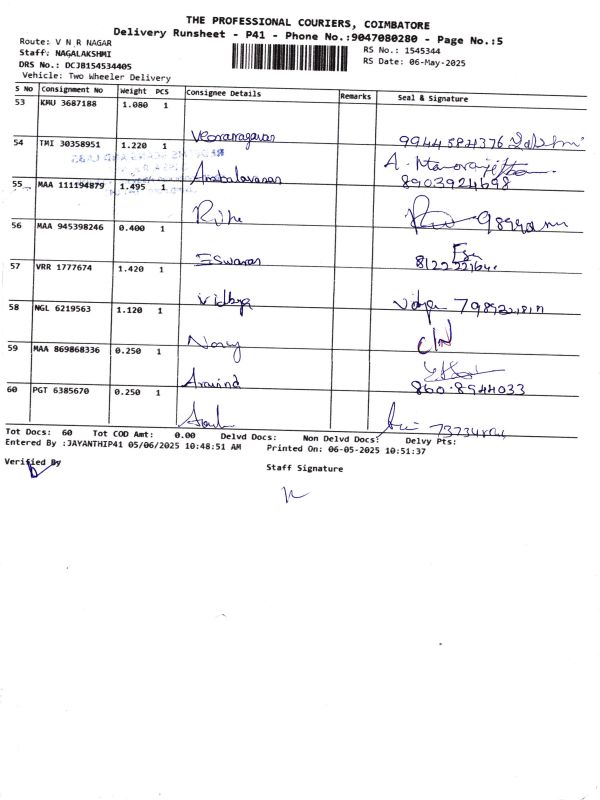 THE PROFESSIONAL COURIERS, COIMBATORE
Delivery Runsheet - P41 - Phone No.:9047080280 - Page No.:5
Route: V N R NAGAR
Staff: NAGALAKSHMI
DRS No.: DCJB154534405
Vehicle: Two Wheeler Delivery
RS No.: 1545344
RS Date: 06-May-2025
S No Consignment No Weight PCS Consignee Details Remarks Seal & Signature
53 KMU 3687188 1.080 1
Veeraragavan
54 TMI 30358951 1.220 1
A. Manoranjitham
8903924698
55 MAA 111194879 1.495 1
56 MAA 945398246 0.400 1
Eswaran
57 VRR 1777674 1.420 1
Vidhya Vidya
58 NGL 6219563 1.120 1
59 MAA 869868336 0.250 1
Aravind 860-8944033
60 PGT 6385670 0.250 1
Tot Docs: 60 Tot COD Amt: 0.00 Delvd Docs: Non Delvd Docs: Delvy Pts:
Entered By :JAYANTHIP41 05/06/2025 10:48:51 AM Printed On: 06-05-2025 10:51:37
Verified By
Staff Signature